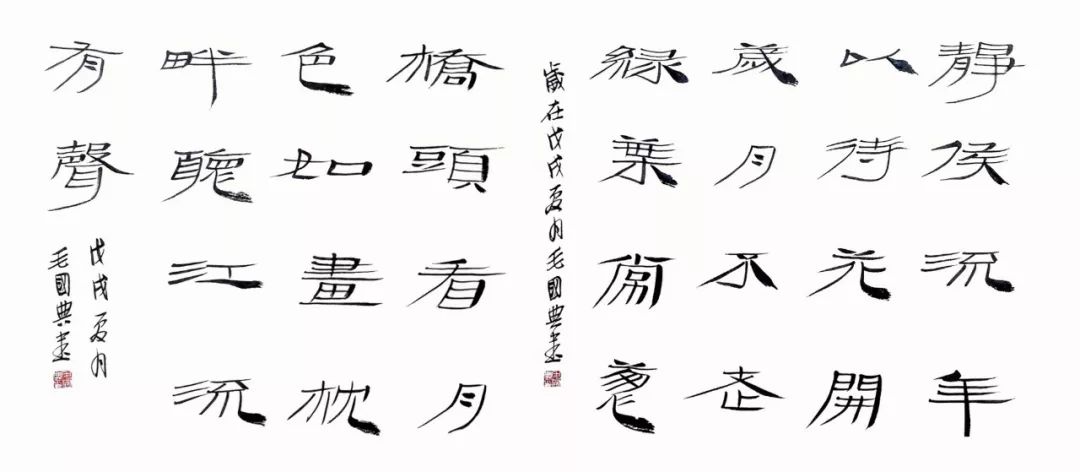 靜侯流年
以待花開
歲月不老
緑葉
歲在戊戌夏月毛國典書
橋頭看月
色如畫枕
畔聽江流
有聲
戊戌夏月
毛國典書